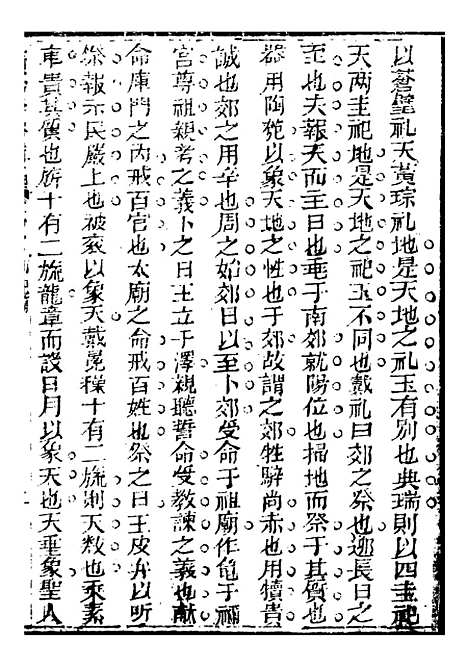 以蒼璧礼天黃琮礼地是天地之礼玉有別也典瑞則以四圭祀
天两圭祀地是天地之祀玉不同也戴礼曰郊之祭也迎長日之
至也大報天而主日也垂于南郊就陽位也掃地而祭于其質也
器用陶匏以象天地之性也于郊故謂之郊牲騂尚赤也用犢貴
誠也郊之用辛也周之始郊日以至卜郊受命于祖廟作龜于禰
宮尊祖親考之義卜之日王立于澤親聽誓命受教諫之義也獻
命庫門之内戒百官也太廟之命戒百姓也祭之日王皮弁以听
祭報示民嚴上也被衮以象天戴冕璪十有二旒則天数也乘素
車貴其質也旂十有二旒龍章而設日月以象天也天垂象聖人